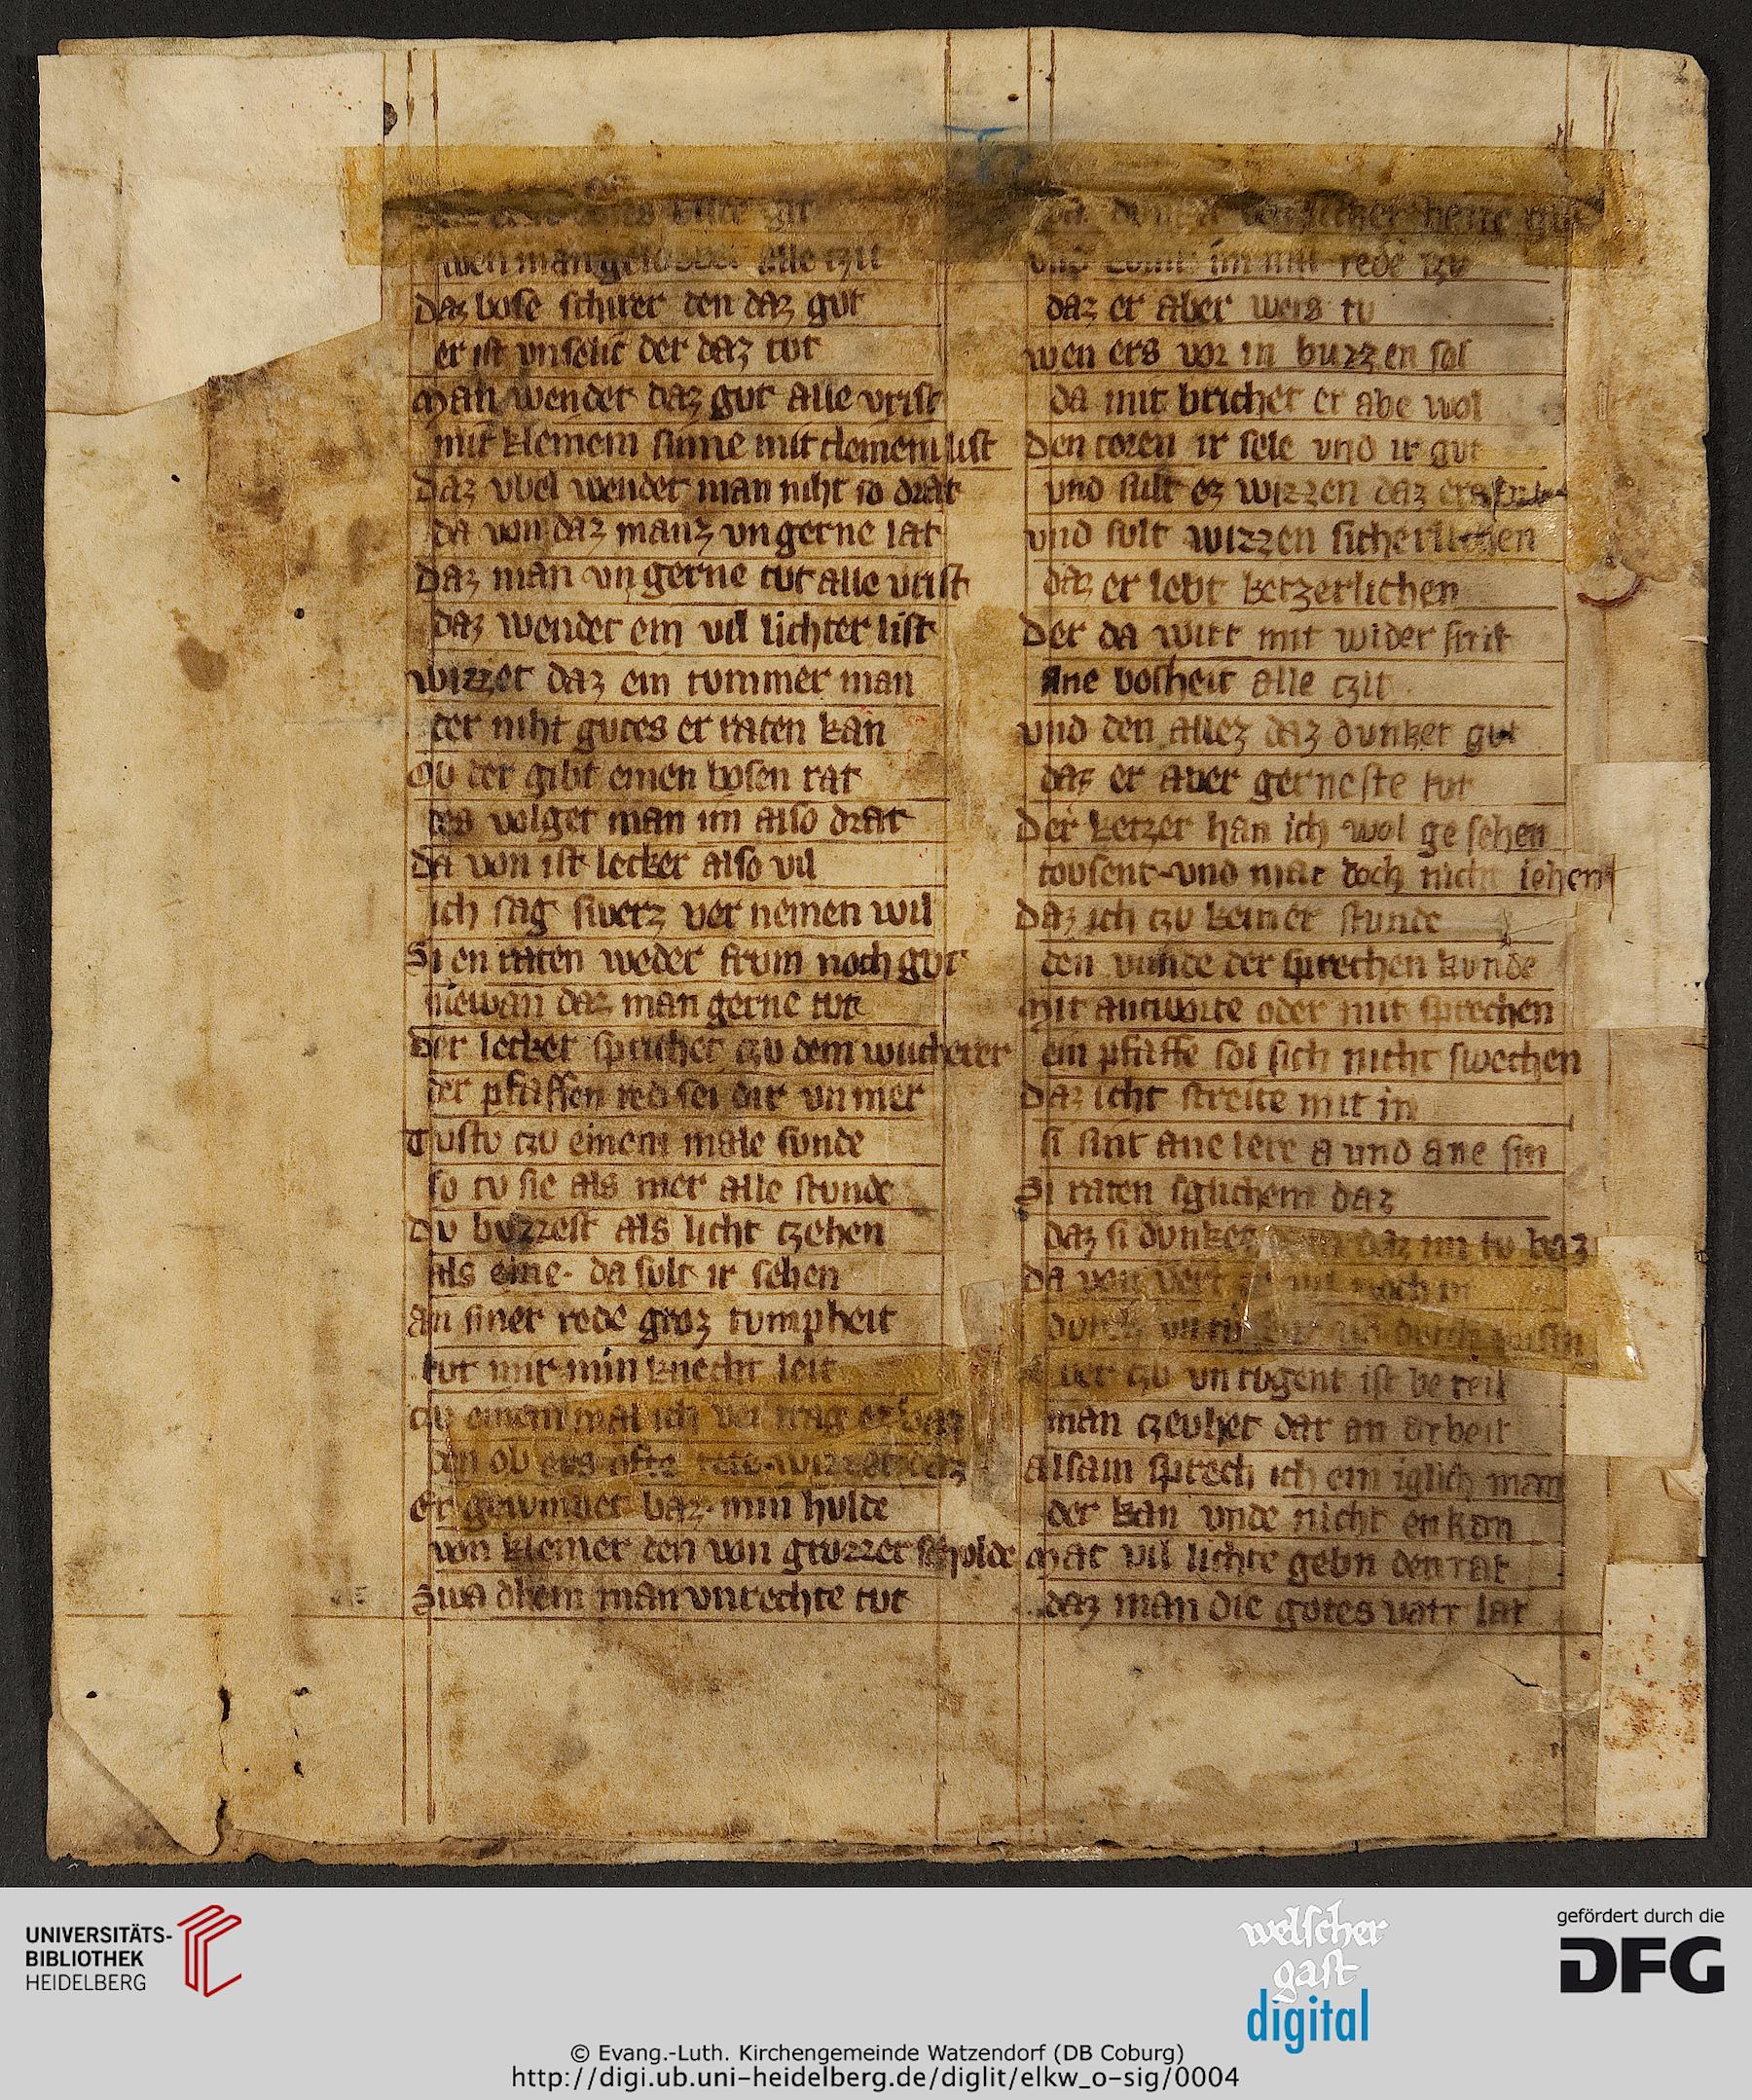 wen man gelovbet alle czit
Daz bose schirer den daz gut
er ist vnselic der daz tvt
Man wendet daz gvt alle vrist
mit kleinem sinne mit cleinem list
Daz vbel wendet man niht so drat
da von daz manz vngerne lat
Daz man vn gerne tvt alle vrist
daz wendet ein vil lichter list
wizzet daz ein tvmmer man
der niht gvtes er raten kan
der gibt einen bosen rat
des volget man im also drat
Da von ist lecker also vil
ich sag swerz ver nemen wil
Si en raten weder frvm noch gvt
niewan daz man gerne tvt
Der lecker sprichet czv dem wucherer
der pfaffen red sei dir vnmer
Tvstv czv einem male svnde
so tv sie als mer alle stvnde
Dv bvzzest als licht czehen
als eine. da svlt ir sehen
an siner rede groz tvmpheit
tvt mir min knecht leit
einem mal ich ver trag ez baz
den ob ers ofte tete wizzet daz
Er gewinnet baz min hvlde
von kleiner den von grozzer schvlde
Swa dhein man vnrechte tvt
vnd kvmt im mit rede czv
daz er aber wers tv
wen ers vor in buzzen sol
da mit brichet er abe wol
Den toren ir sele vnd ir gvt
vnd svlt ez wizzen daz
vnd svlt wizzen sicherlichen
daz er lebt ketzerlichen
Der da wirt mit wider strit
ane bosheit alle czit
vnd den allez daz dvnket gvt
daz er aber gerneste tvt
Der ketzer han ich wol ge sehen
tovsent vnd mac doch nicht iehen
Daz ich czv keiner stvnde
den vunde der sprechen kvnde
Mit antworte oder mit sprechen
ein pfaffe sol sich nicht swechen
Daz icht streite mit in
si sint ane lere a vnd ane sin
Si raten iglichem daz
daz si dvnket daz im tv baz
Da von
dvrch
der czv vntvgent ist be reit
man czevhet dar an arbeit
Alsam sprech ich ein iglich man
der kan vnde nicht enkan
Mac vil lichte gebn den rat
daz man die gotes vart lat
UNIVERSITÄTS-
BIBLIOTHEK
HEIDELBERG
welscher
gast
digital
gefördert durch die
DFG
© Evang.-Luth. Kirchengemeinde Watzendorf (DB Coburg)
http://digi.ub.uni-heidelberg.de/diglit/elkw_o-sig/0004